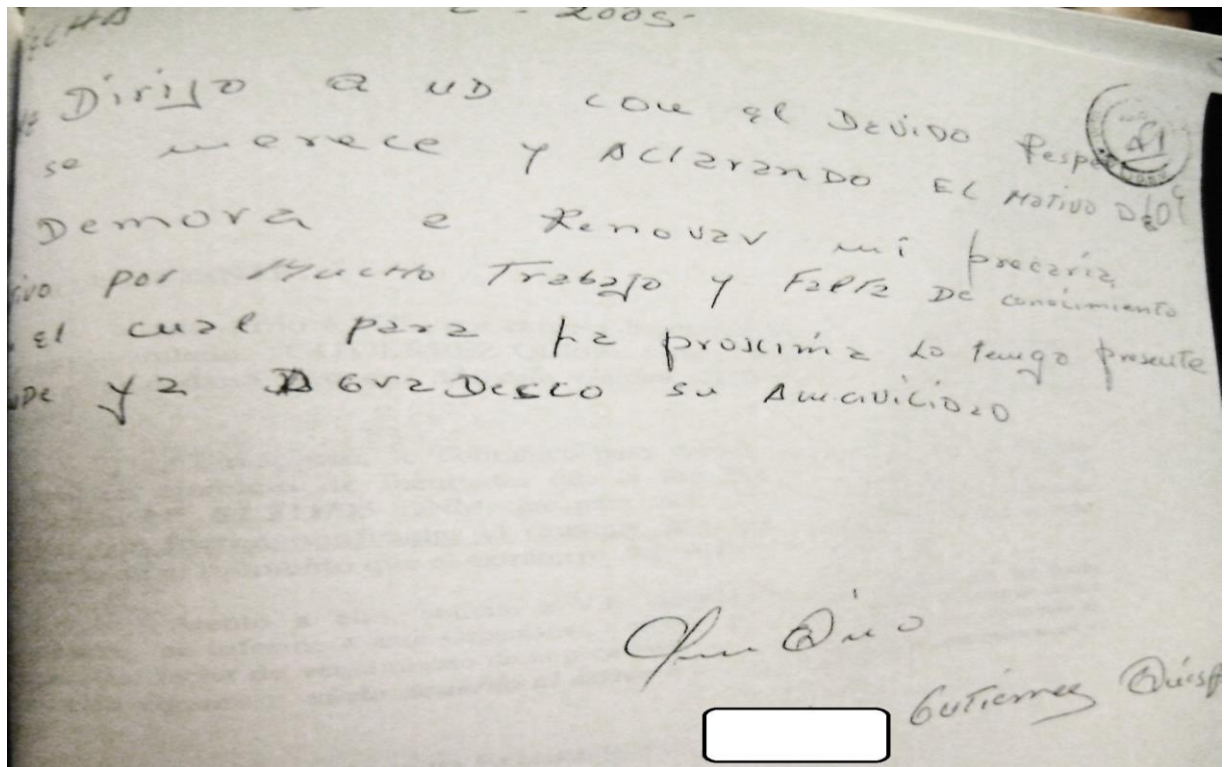 ECHA 2005-
Dirijo a UD con el Devido Respe
se merece y Aclarando El Motivo D
Demora e Renovar mi precaria
ivo por Mucho Trabajo y Falta De conocimiento
el cual para La proxima Lo tengo presente
ya AGraDesco su Amavilidad
Gutierrez Quisp